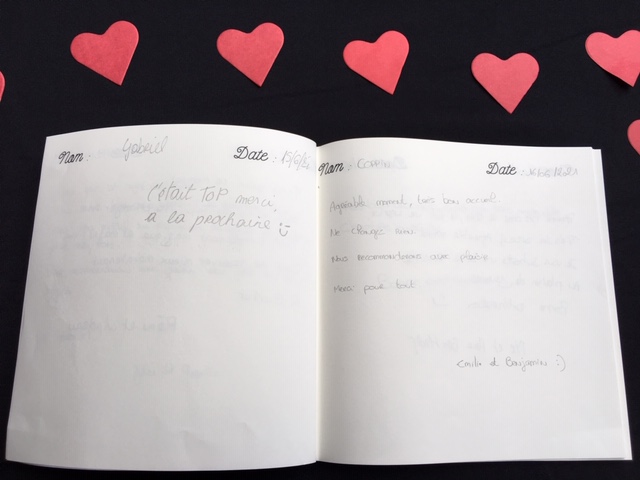 Nom : Gabriel Date : 15/6/21
C'était TOP merci,
à la prochaine :)
Nom : Date :
Agréable moment, très bon accueil.
Ne changez rien.
Nous recommanderons avec plaisir
Merci pour tout.
Emilie et Benjamin :)